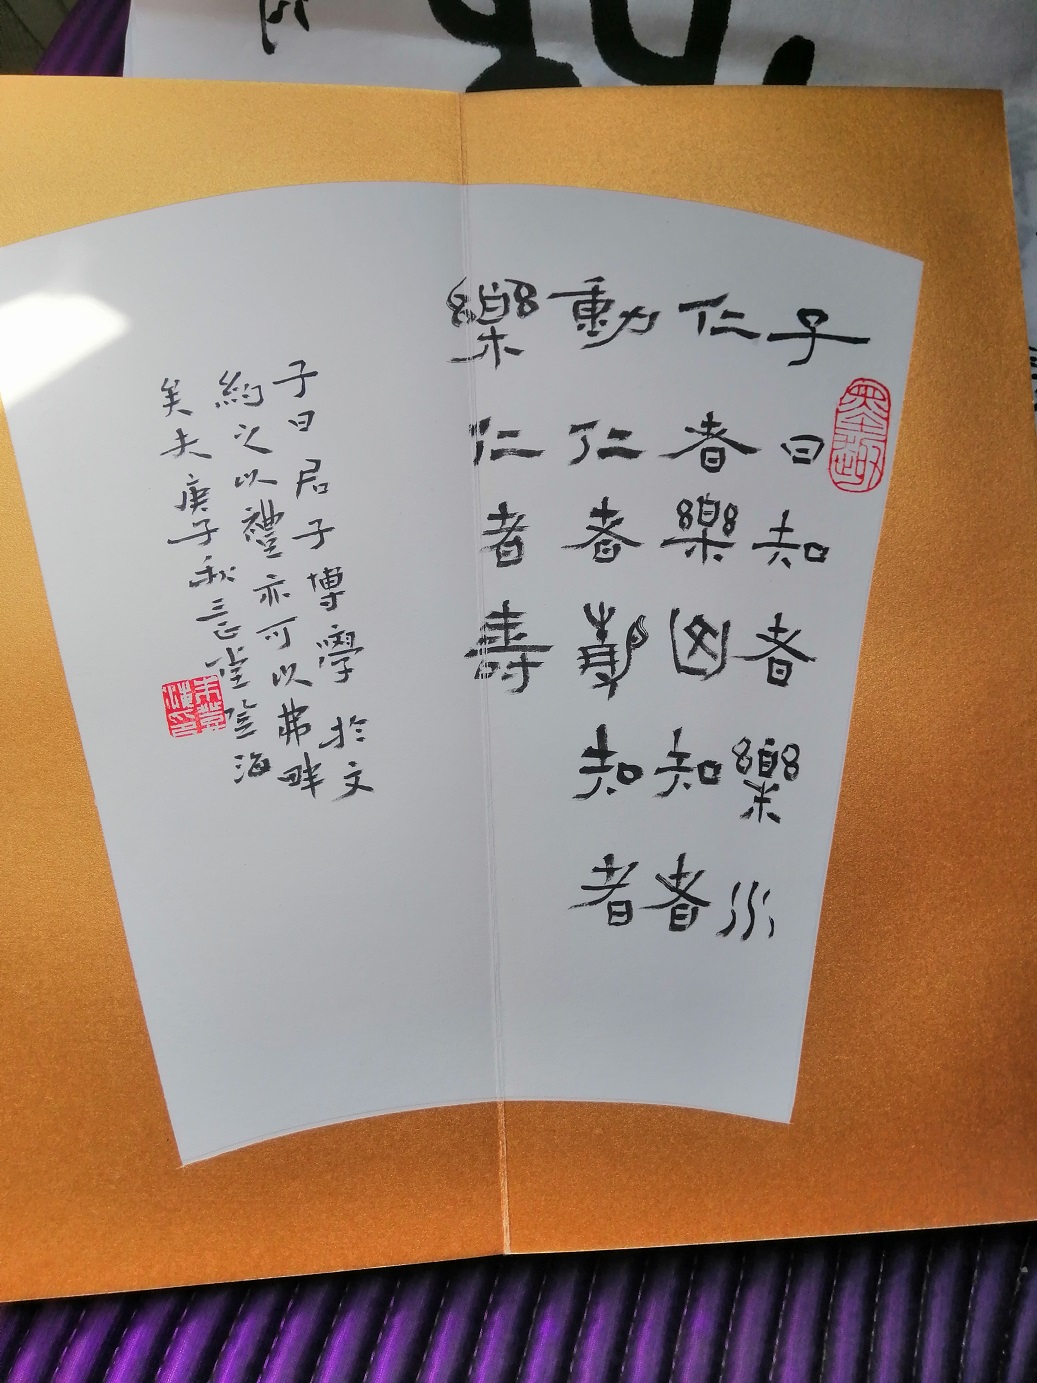 子曰知者樂水
仁者樂山知者
動仁者靜知者
樂仁者壽
子曰君子博學於文
約之以禮亦可以弗畔
矣夫庚子秋
墨趣